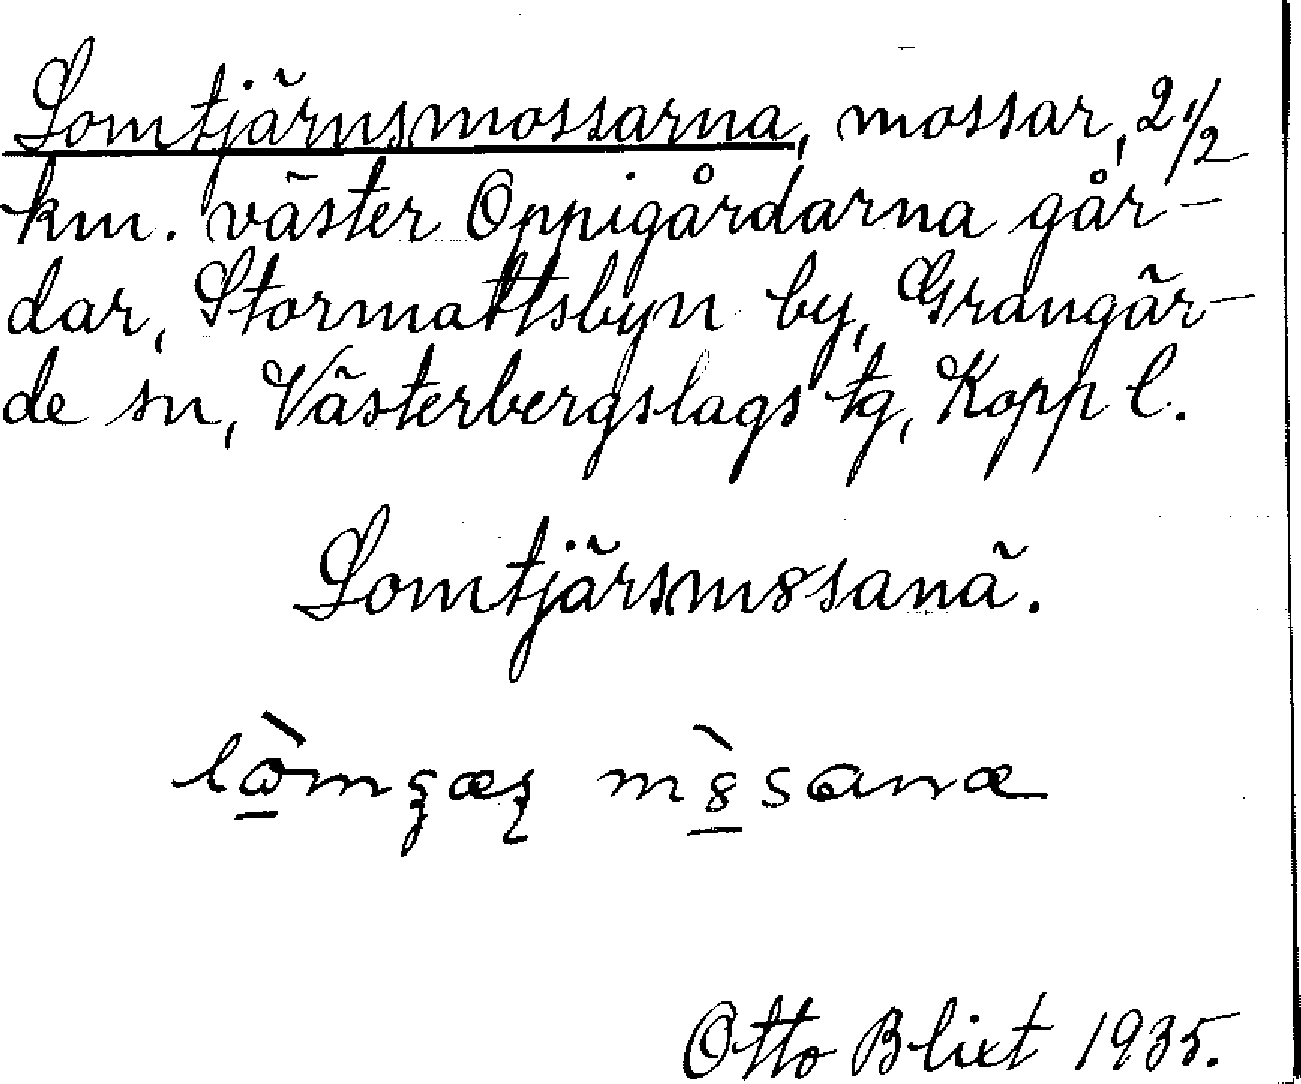 Lomtjärnsmossarna, mossar, 2 1/2
km. väster Oppigårdarna går-
dar, Stormattsbyn by, Grangär-
de sn, Västerbergslags tg, Kopp l.
Lomtjärsm8sanä.
Otto Blixt 1935.